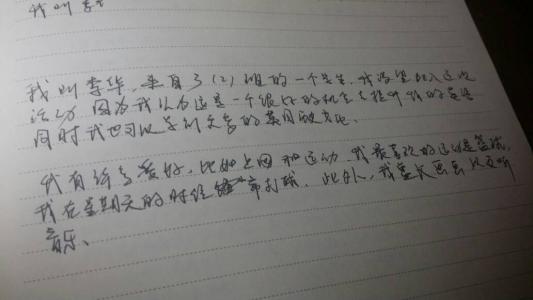 我叫李华
我叫李华,来自3(2)班的一个学生,我渴望加入这次
活动,因为我认为这是一个很好的机会去提升我的英语
同时我也可以学到更多的英国文化。
我有许多爱好,比如上网和运动,我最喜欢的运动是篮球,
我在星期天的时候经常打球,此外,我擅长画画以及听
音乐、